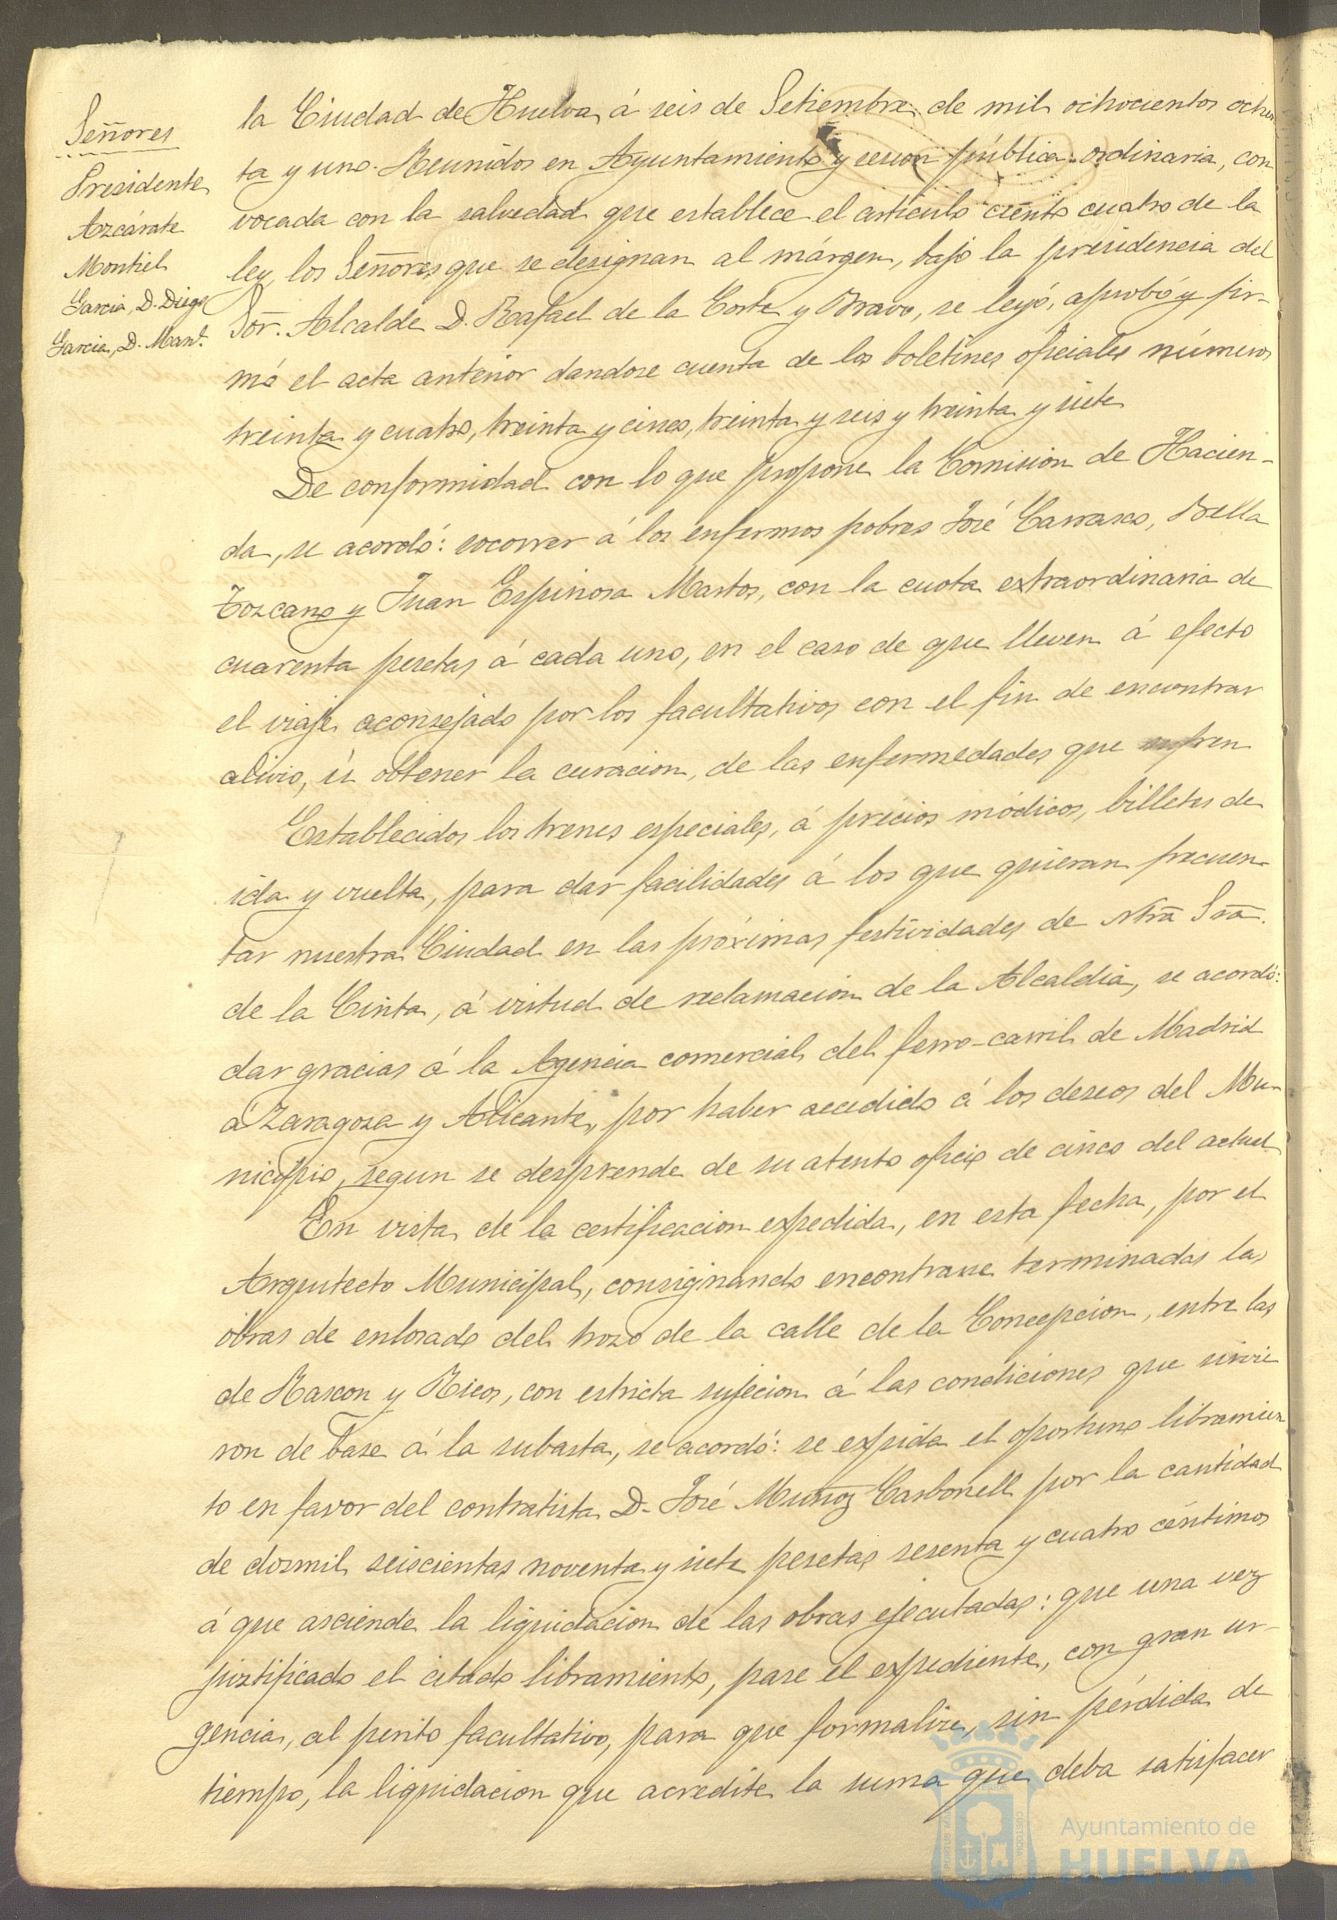 Señores
Presidente
Azcárate
Montiel
Garcia, D. Diego
Garcia, D. Manl.
la Ciudad de Huelva, á seis de Setiembre de mil ochocientos ochen
ta y uno. Reunidos en Ayuntamiento y sesion pública ordinaria, con
vocada con la salvedad que establece el artículo ciento cuatro de la
ley, los Señores que se designan al márgen, bajo la presidencia del
Sor. Alcalde D. Rafael de la Corte y Bravo, se leyó, aprobó y fir-
mó el acta anterior dandose cuenta de los boletines oficiales números
treinta y cuatro, treinta y cinco, treinta y seis y treinta y siete
De conformidad con lo que propone la Comision de Hacien-
da, se acordó: socorrer á los enfermos pobres José Carrasco, Bella
Tozcano y Juan Espinosa Martos, con la cuota extraordinaria de
cuarenta pesetas á cada uno, en el caso de que lleven á efecto
el viaje aconsejado por los facultativos con el fin de encontrar
alivio, ú obtener la curacion, de las enfermedades que sufren
Establecidos los trenes especiales, á precios módicos, billetes de
ida y vuelta, para dar facilidades á los que quieran frecuen-
tar nuestra Ciudad en las próximas festividades de Ntrã Srã.
de la Cinta, á virtud de reclamacion de la Alcaldia, se acordó:
dar gracias á la Agencia comercial del ferro-carril de Madrid
á Zaragoza y Alicante, por haber accedido á los deseos del Mu-
nicipio, segun se desprende de su atento oficio de cinco del actual
En vista de la certificacion expedida, en esta fecha, por el
Arquitecto Municipal, consignando encontrarse terminadas las
obras de enlosado del trozo de la calle de la Concepcion, entre las
de Rascon y Ricos, con estricta sujecion á las condiciones que sirvie
ron de base á la subasta, se acordó: se expida el oportuno libramien
to en favor del contratista D. José Muñoz Carbonell por la cantidad
de dosmil seiscientas noventa y siete pesetas sesenta y cuatro céntimos
á que asciende la liquidacion de las obras ejecutadas: que una vez
justificado el citado libramiento, pase el expediente, con gran ur-
gencia, al perito facultativo, para que formalize, sin pérdida de
tiempo, la liquidacion que acredite la suma que deba satisfacer
Ayuntamiento de
HUELVA